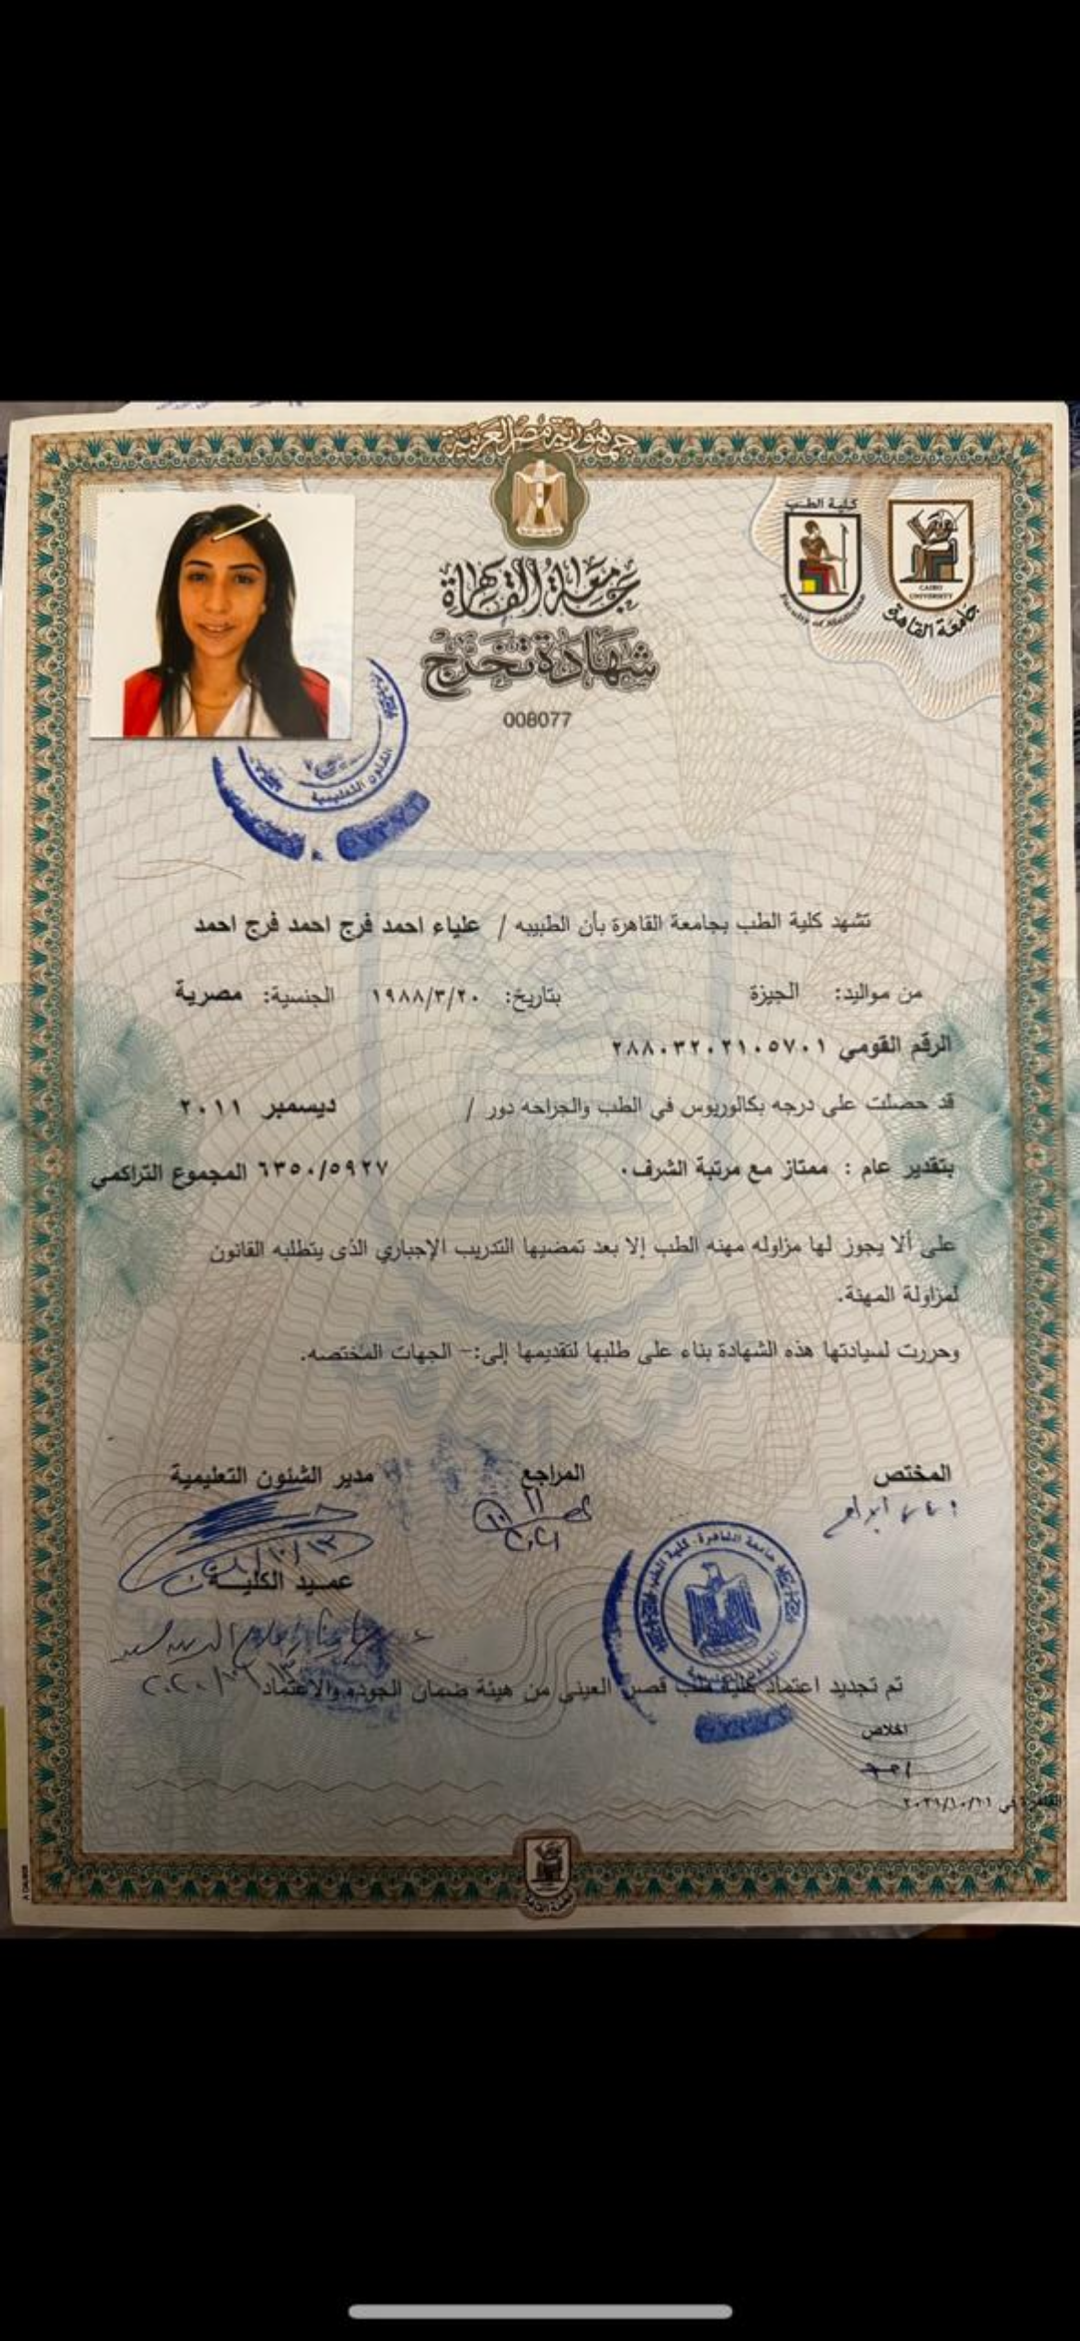 جمهورية مصر العربية
كلية الطب
Faculty of Medicine
CAIRO
UNIVERSITY
جامعة القاهرة
جامعة القاهرة
شهادة تخرج
008077
الشئون التعليمية
تشهد كلية الطب بجامعة القاهرة بأن الطبيبه / علياء احمد فرج احمد فرج احمد
من مواليد: الجيزة بتاريخ: ١٩٨٨/٣/٢٠ الجنسية: مصرية
الرقم القومي ٢٨٨٠٣٢٠٢١٠٥٧٠١
قد حصلت على درجه بكالوريوس في الطب والجراحه دور / ديسمبر ٢٠١١
بتقدير عام : ممتاز مع مرتبة الشرف. ٦٣٥٠/٥٩٢٧ المجموع التراكمي
على ألا يجوز لها مزاوله مهنه الطب إلا بعد تمضيها التدريب الإجباري الذى يتطلبه القانون
لمزاولة المهنة.
وحررت لسيادتها هذه الشهادة بناء على طلبها لتقديمها إلى:- الجهات المختصه.
المختص المراجع مدير الشئون التعليمية
عميد الكلية
جامعة القاهرة . كلية الطب
تم تجديد اعتماد كلية طب قصر العينى من هيئة ضمان الجوده والاعتماد
اخلاص
القاهرة في
جامعة القاهرة